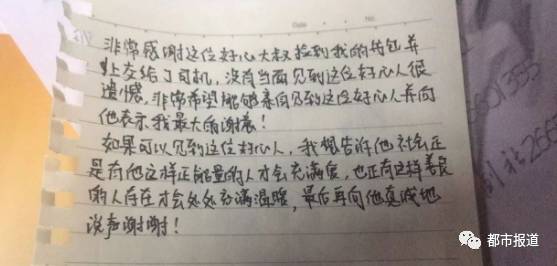 Date · No.
非常感谢这位好心大叔捡到我的钱包并
上交给了司机，没有当面见到这位好心人很
遗憾，非常希望能够亲自见到这位好心人并向
他表示我最大的谢意！
如果可以见到这位好心人，我想告诉他社会正
是有他这样正能量的人才会充满爱，也正有这样善良
的人存在才会处处充满温暖，最后再向他真诚地
说声谢谢！
都市报道